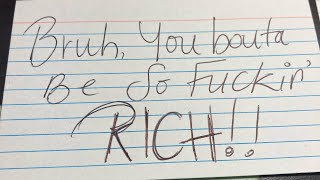 Bruh, You bouta
Be So Fuckin'
RICH!!